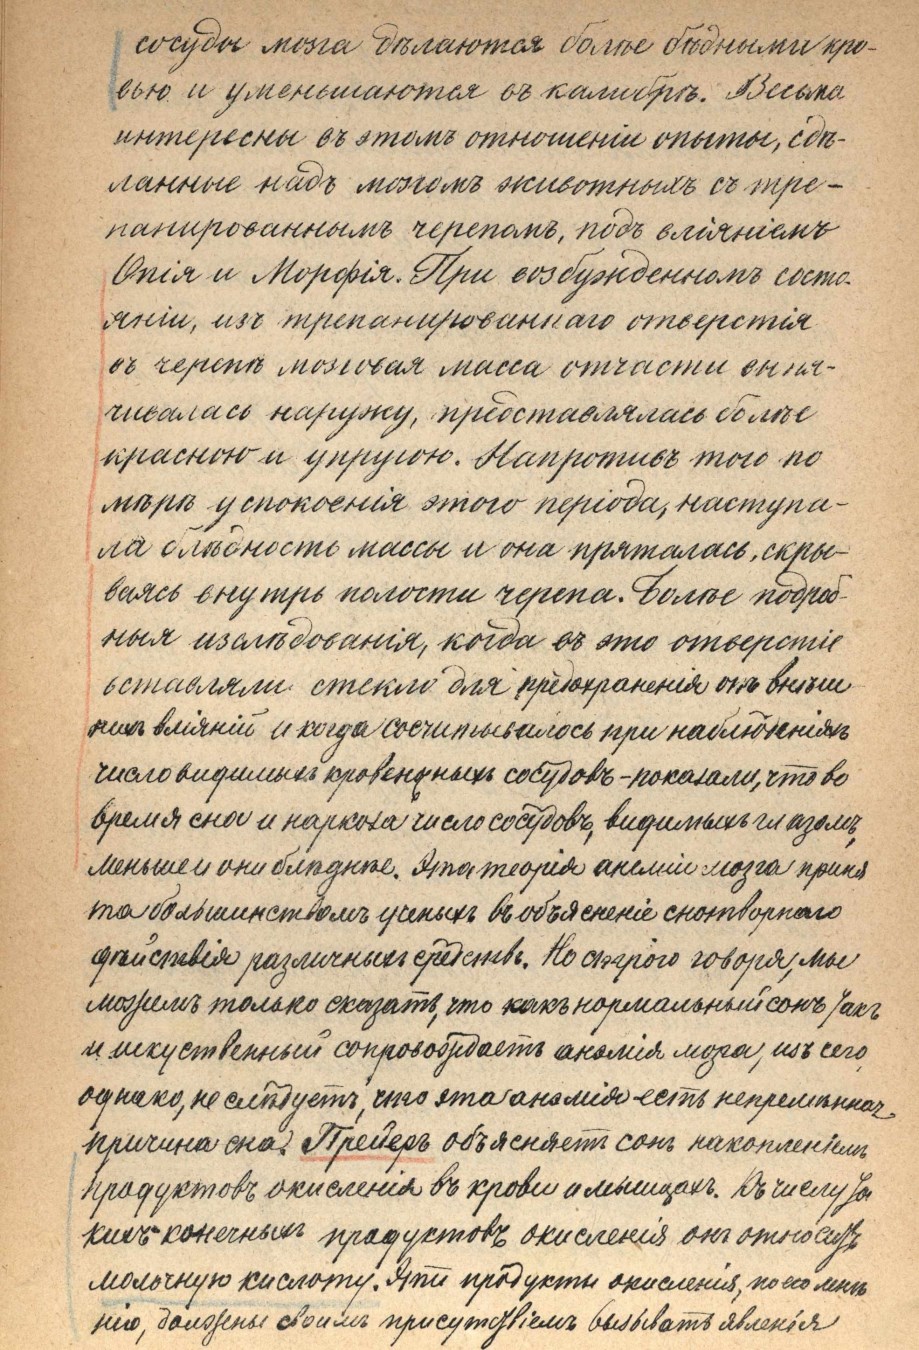 сосуды мозга дѣлаются болѣе бѣдными кро-
вью и уменьшаются въ калибрѣ. Весьма
интересны въ этомъ отношеніи опыты, сдѣ-
ланные надъ мозгомъ животныхъ съ тре-
панированнымъ черепомъ, подъ вліяніемъ
Опія и Морфія. При возбужденномъ состо-
яніи, изъ трепанированнаго отверстія
въ черепѣ мозговая масса отчасти выпя-
чивалась наружу, представлялась болѣе
красною и упругою. Напротивъ того по
мѣрѣ успокоенія этого періода, наступа-
ла блѣдность массы и она пряталась, скры-
ваясь внутрь полости черепа. Болѣе подроб-
ныя изслѣдованія, когда въ это отверстіе
вставляли стекло для предохраненія отъ внѣш
нихъ вліяній и когда сосчитывалось при наблюденіяхъ
число видимыхъ кровеносныхъ сосудовъ - показали, что во
время сна и наркоза число сосудовъ, видимыхъ глазомъ,
меньше и они блѣднѣе. Эта теорія анеміи мозга приня
та большинствомъ ученыхъ въ объясненіе снотворнаго
дѣйствія различныхъ средствъ. Но строго говоря, мы
можемъ только сказать, что какъ нормальный сонъ такъ
и искуственный сопровождаетъ анэмія мозга, изъ сего,
однако, не слѣдуетъ, что эта анэмія есть непремѣнная
причина сна. Прейеръ объясняетъ сонъ накопленіемъ
продуктовъ окисленія въ крови и мышцахъ. Къ числу та
кихъ конечныхъ продуктовъ окисленія онъ относитъ
молочную кислоту. Эти продукты окисленія, по его мнѣ
нію, должны своимъ присутствіемъ вызывать явленія